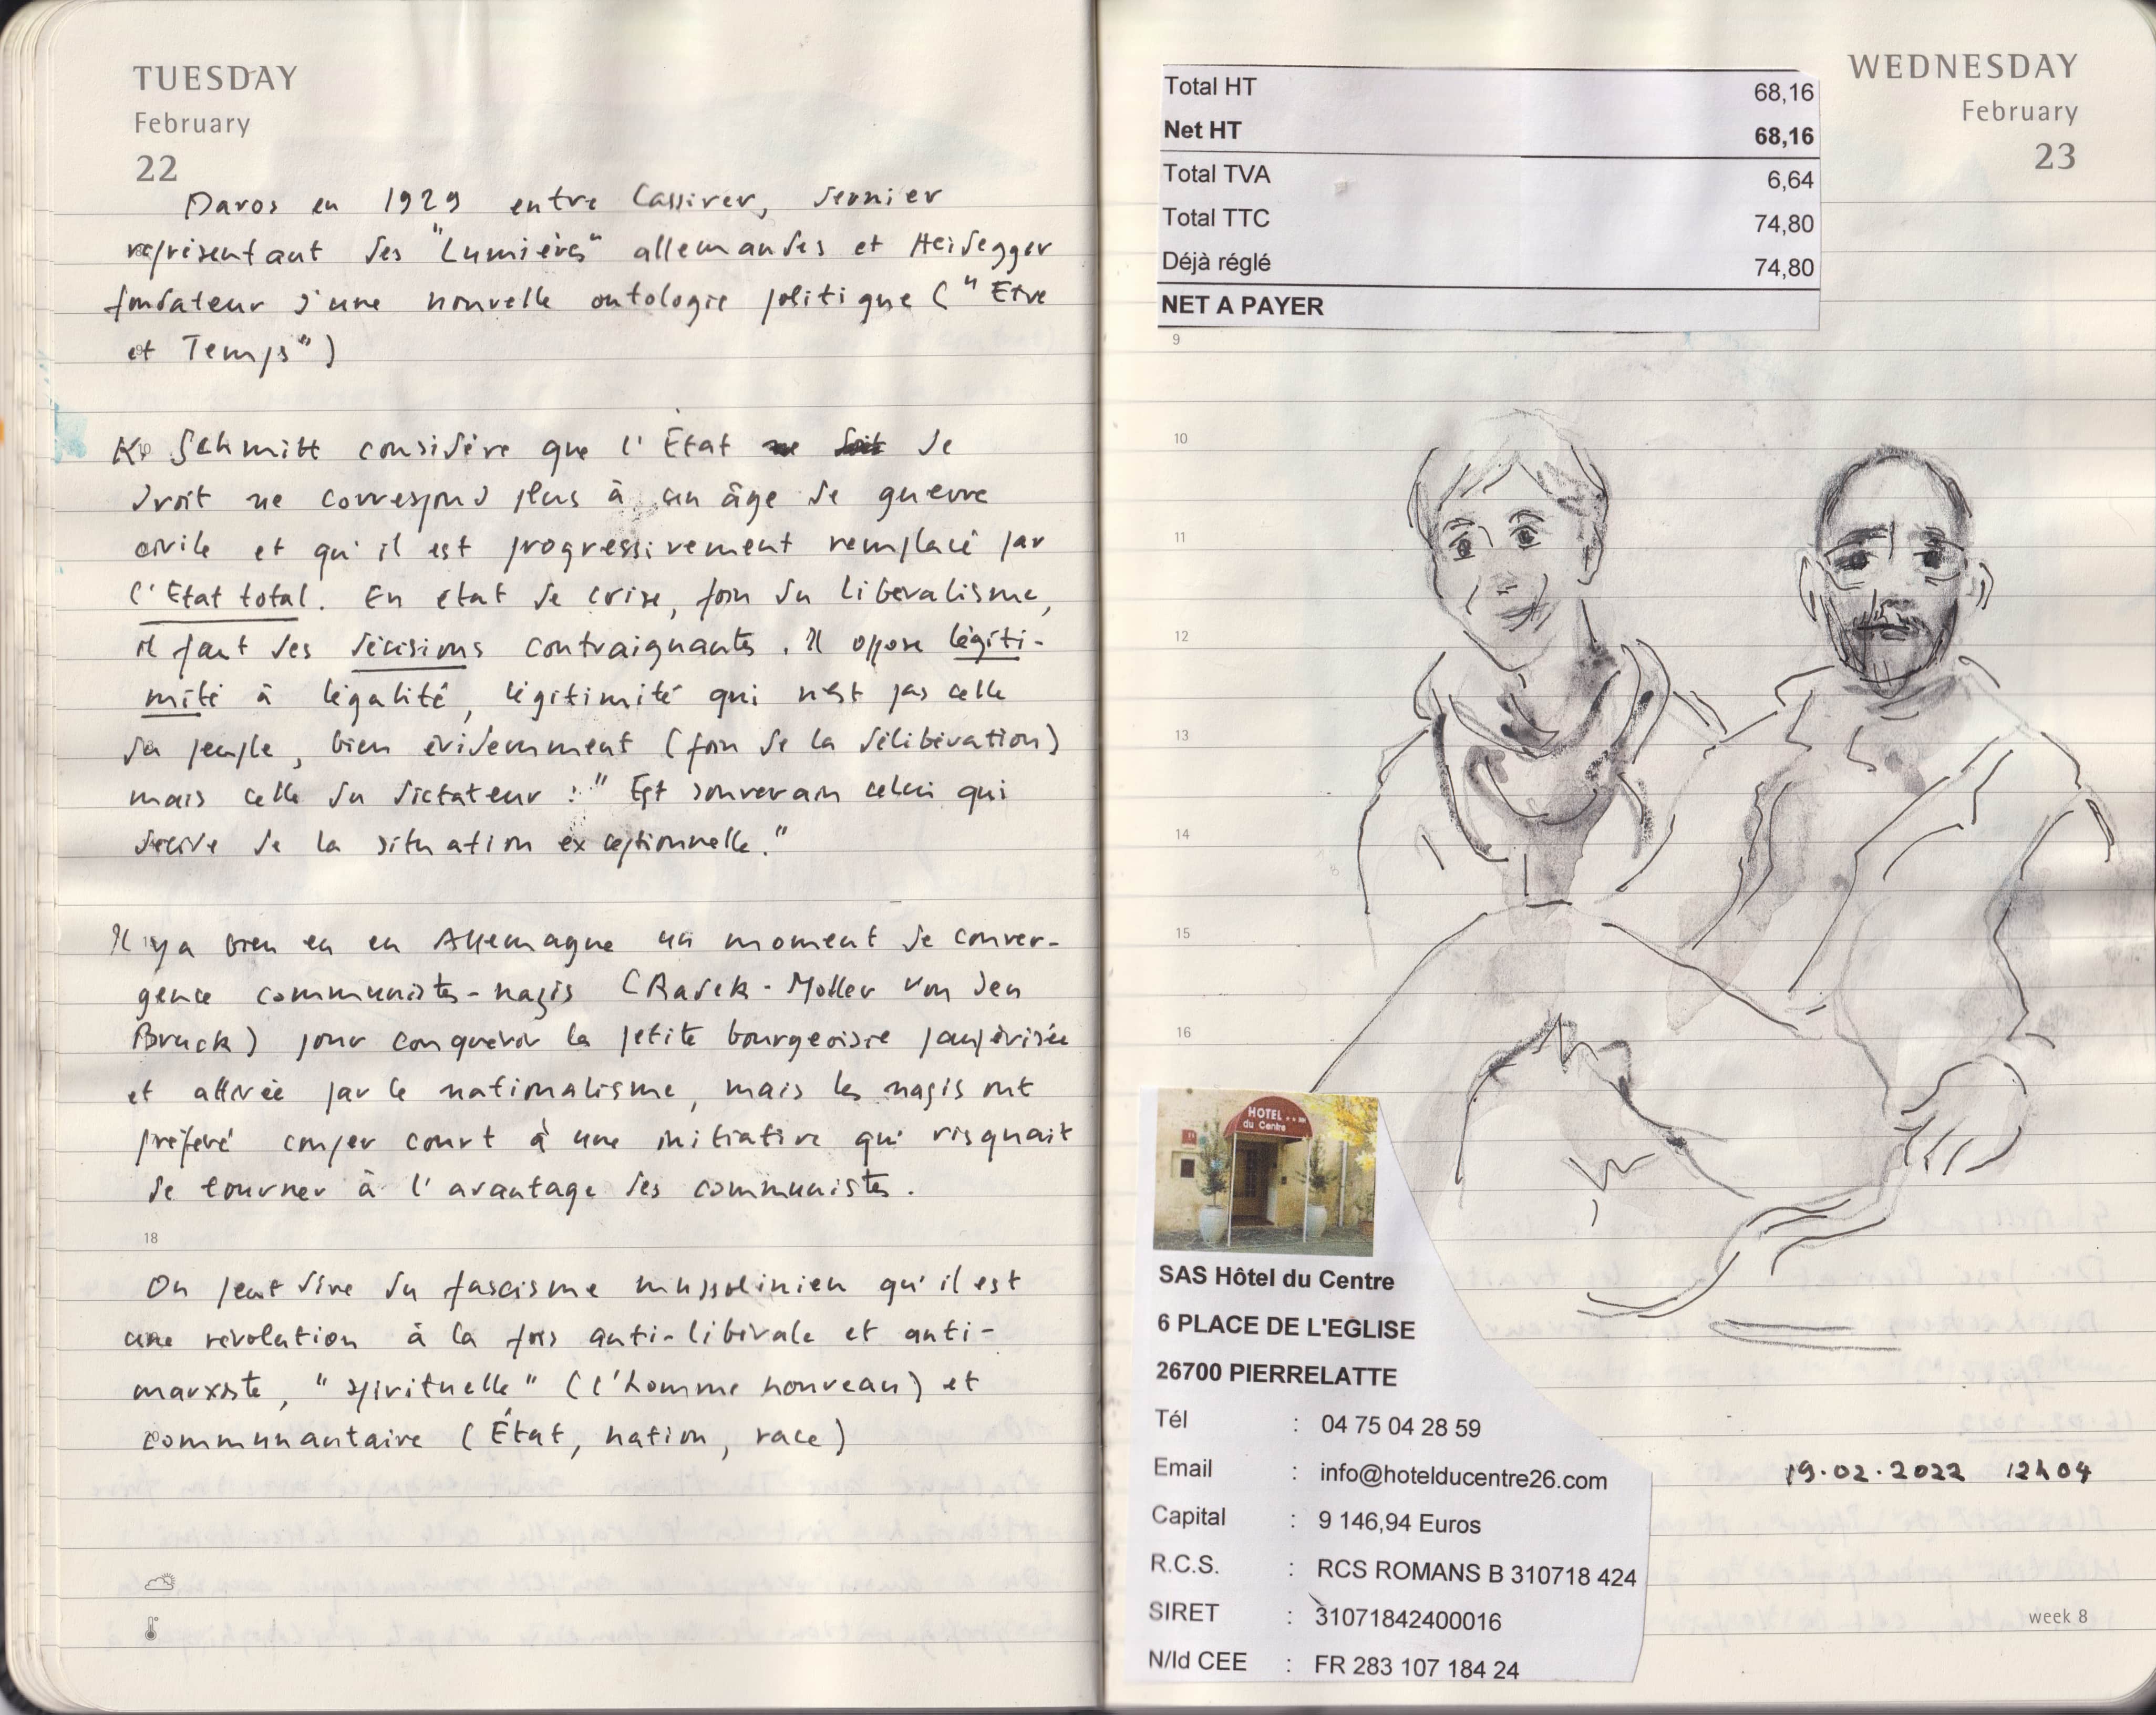 TUESDAY
February
22
Davos en 1929 entre Cassirer, dernier
représentant des "Lumières" allemandes et Heidegger
fondateur d'une nouvelle ontologie politique ("Etre
et Temps")
K. Schmitt considère que l'État de
droit ne correspond plus à un âge de guerre
civile et qu'il est progressivement remplacé par
l'Etat total. En etat de crise, foin du libéralisme,
il faut des décisions contraignantes. Il oppose légiti-
mité à légalité, légitimité qui n'est pas celle
du peuple, bien évidemment (foin de la délibération)
mais celle du dictateur : "Est souverain celui qui
décide de la situation exceptionnelle."
Il y a bien eu en Allemagne un moment de conver-
gence communistes-nazis (Radek - Moller van den
Bruck) pour conquérir la petite bourgeoisie paupérisée
et attirée par le nationalisme, mais les nazis ont
préféré couper court à une initiative qui risquait
de tourner à l'avantage des communistes.
18
On peut dire du fascisme mussolinien qu'il est
une révolution à la fois anti-libérale et anti-
marxiste, "spirituelle" (l'homme nouveau) et
communautaire (État, nation, race)
WEDNESDAY
February
23
Total HT 68,16
Net HT 68,16
Total TVA 6,64
Total TTC 74,80
Déjà réglé 74,80
NET A PAYER
9
10
11
12
13
14
15
16
HOTEL ***
du Centre
SAS Hôtel du Centre
6 PLACE DE L'EGLISE
26700 PIERRELATTE
Tél : 04 75 04 28 59
Email : info@hotelducentre26.com
Capital : 9 146,94 Euros
R.C.S. : RCS ROMANS B 310718 424
SIRET : 31071842400016
N/Id CEE : FR 283 107 184 24
19.02.2022 12h04
week 8